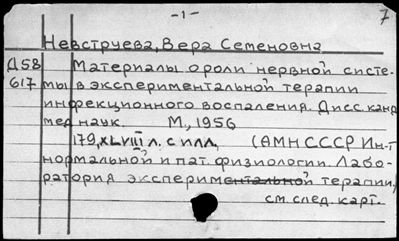 -1- 7
Невструева, Вера Семеновна
Д58 Материалы о роли нервной систе-
617 мы в экспериментальной терапии
инфекционного воспаления. Дисс. канд.
мед. наук. М., 1956
179, XLVIII л. с илл, (АМН СССР Ин-т
нормальной и пат. физиологии. Лабо-
ратория экспериментальной терапии,
см. след. карт.